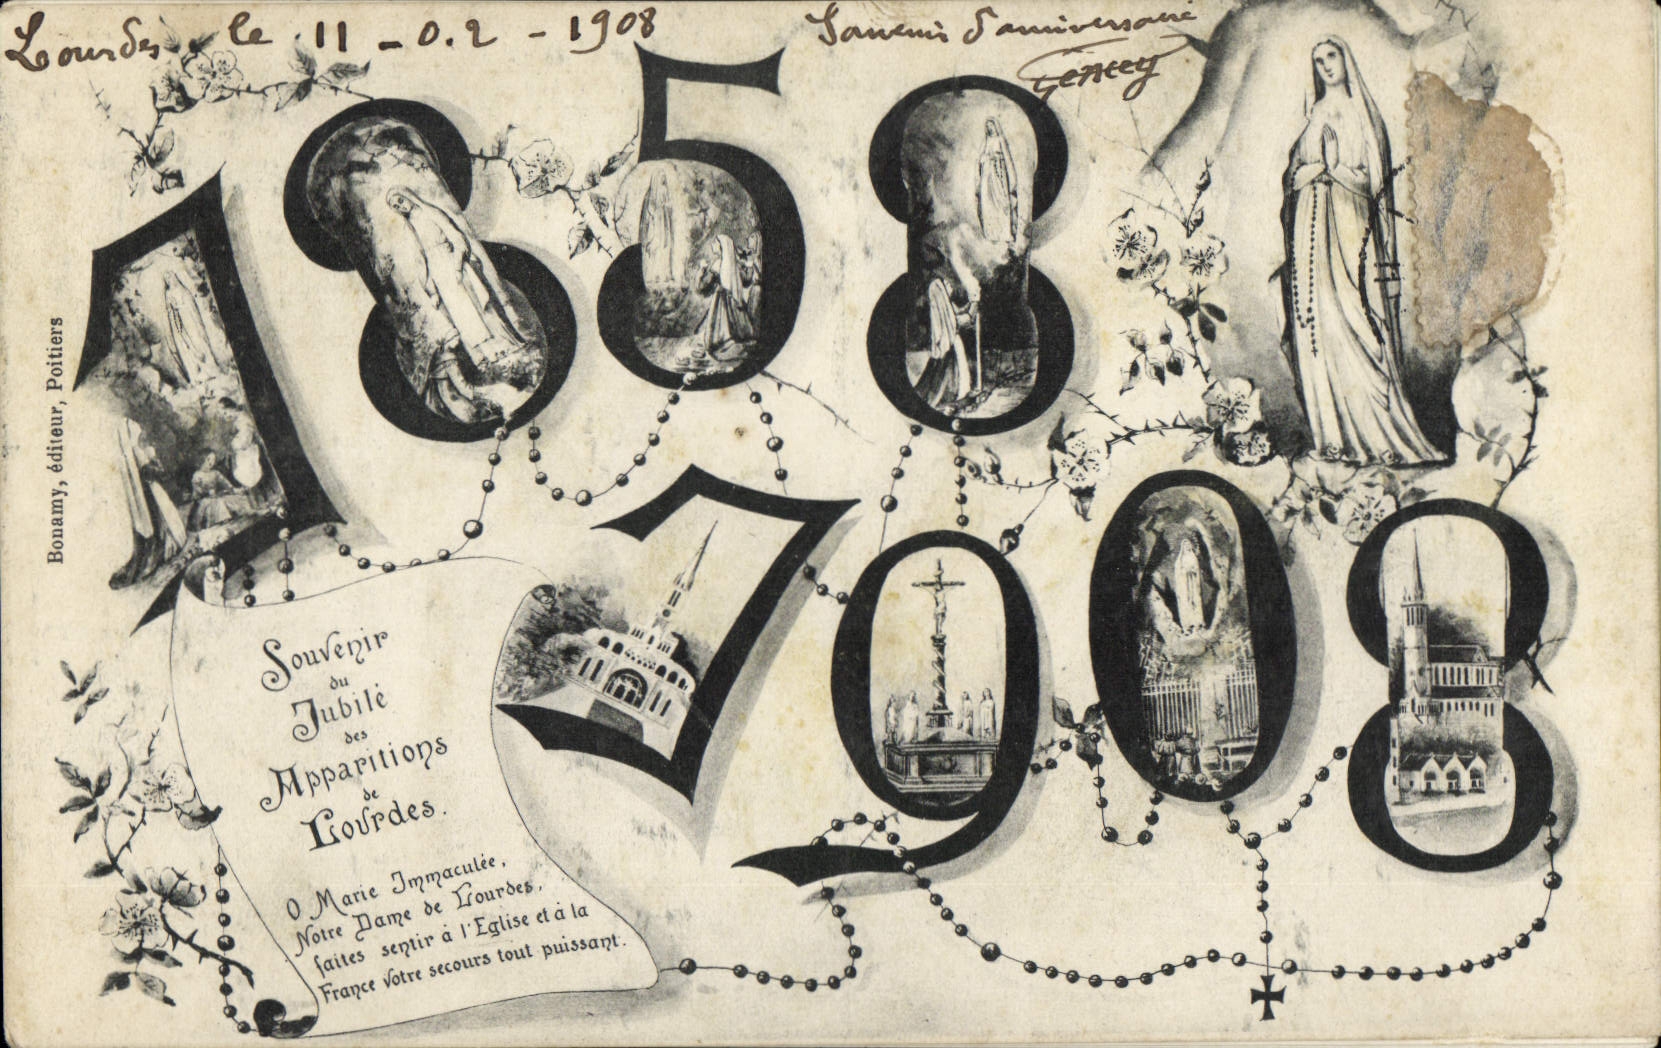 Lourdes le 11 - 02 - 1908
Souvenir d'anniversaire
1858
1908
Bonamy, éditeur, Poitiers
Souvenir
du
Jubilé
des
Apparitions
de
Lourdes.
O Marie Immaculée,
Notre Dame de Lourdes,
faites sentir à l'Eglise et à la
France votre secours tout puissant.